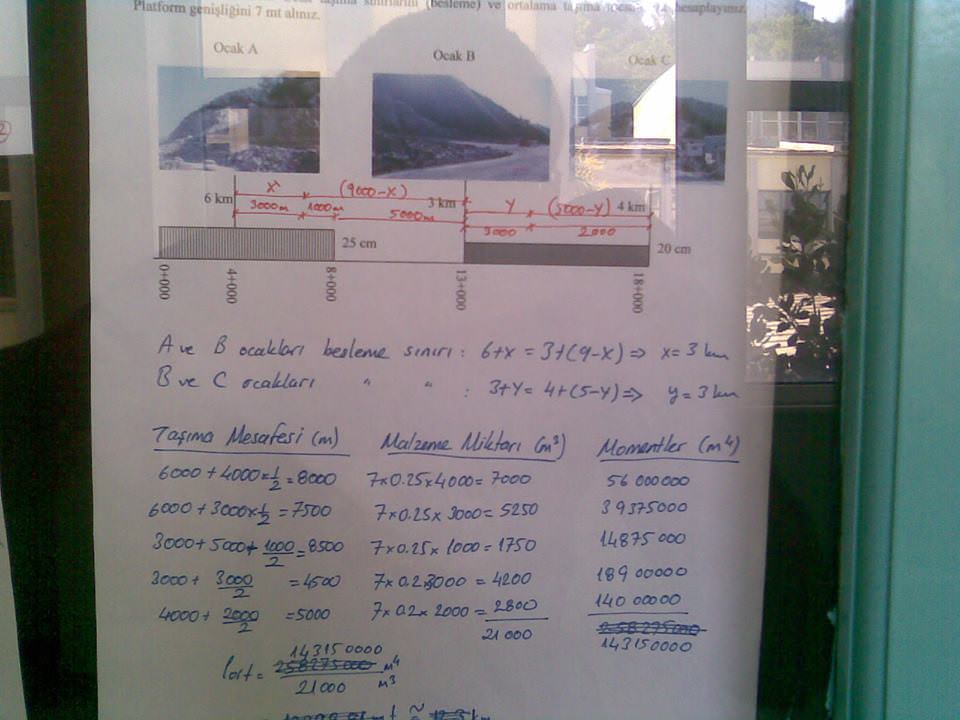 taşıma sınırlarını (besleme) ve ortalama taşıma hesaplayınız.
Platform genişliğini 7 mt alınız.
Ocak A Ocak B Ocak C
x (9000-x)
6 km 3000m 1000m 5000m 3 km y (5000-y) 4 km
3000 2000
25 cm 20 cm
0+000 4+000 8+000 13+000 18+000
A ve B ocakları besleme sınırı : 6+x = 3+(9-x) => x= 3 km
B ve C ocakları " " : 3+y = 4+(5-y) => y= 3 km
Taşıma Mesafesi (m) Malzeme Miktarı (m³) Momentler (m⁴)
6000 + 4000×1/2 = 8000 7×0.25×4000= 7000 56 000000
6000 + 3000×1/2 = 7500 7×0.25× 3000= 5250 39375000
3000+ 5000+ 1000/2 = 8500 7×0.25× 1000= 1750 14875 000
3000+ 3000/2 = 4500 7×0.2×3000 = 4200 18900000
4000+ 2000/2 = 5000 7×0.2× 2000 = 2800 140 00000
21 000 258275000
143150000
143150000
lort = 258275000 m⁴
21000 m³